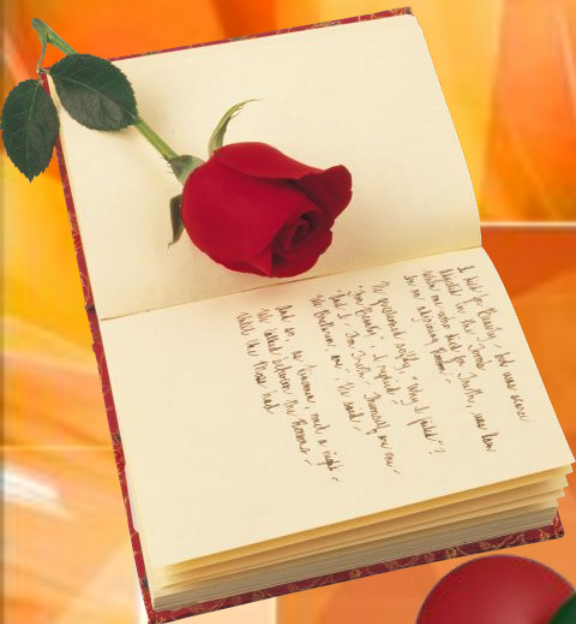 I died for Beauty - but was scarce
Adjusted in the Tomb
When One who died for Truth, was lain
In an adjoining Room -
He questioned softly, "Why I failed"?
"For Beauty", I replied -
"And I - for Truth - Themself are One -
We Bretheren, are", He said -
And so, as Kinsmen, met a Night -
We talked between the Rooms -
Until the Moss had